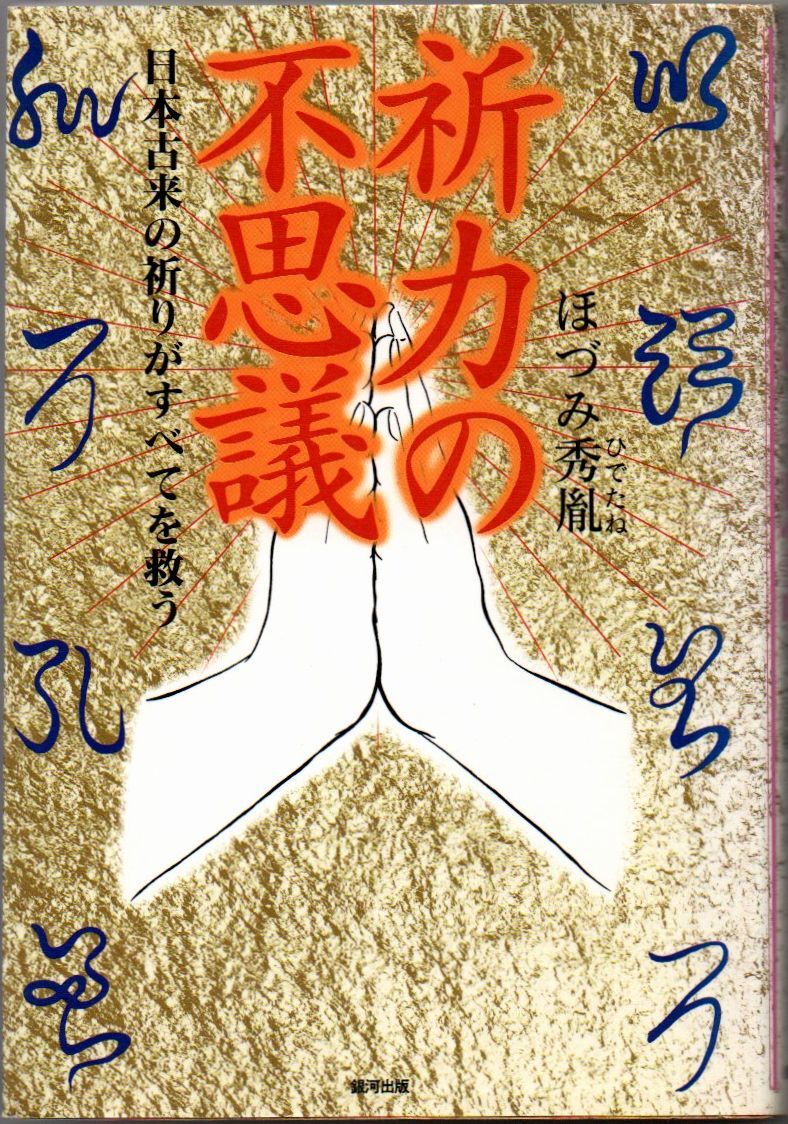 祈力の
不思議
ほづみ秀胤
ひでたね
日本古来の祈りがすべてを救う
銀河出版